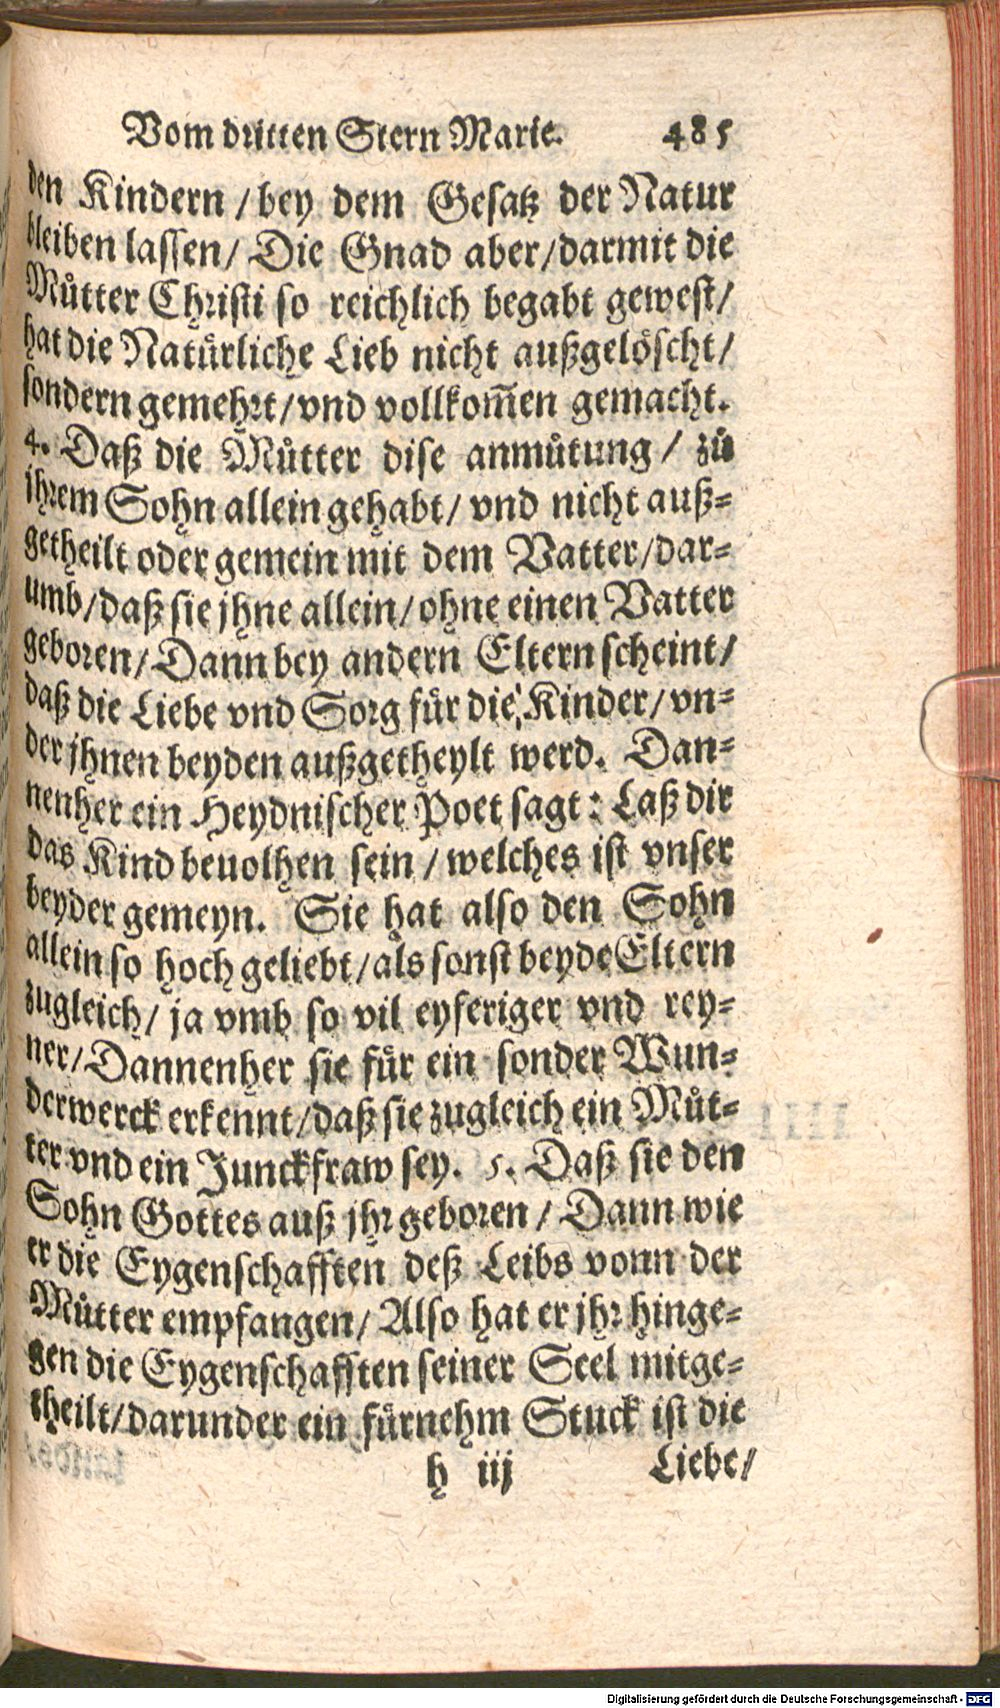 Vom dritten Stern Marie. 485
den Kindern / bey dem Gesatz der Natur
bleiben lassen / Die Gnad aber / darmit die
Můtter Christi so reichlich begabt gewest /
hat die Natůrliche Lieb nicht außgelöscht /
sondern gemehrt / vnd vollkom̃en gemacht.
4. Daß die Můtter dise anmůtung / zů
jhrem Sohn allein gehabt / vnd nicht auß=
getheilt oder gemein mit dem Vatter / dar=
umb / daß sie jhne allein / ohne einen Vatter
geboren / Dann bey andern Eltern scheint /
daß die Liebe vnd Sorg fůr die Kinder / vn=
der jhnen beyden außgetheylt werd. Dan=
nenher ein Heydnischer Poet sagt: Laß dir
das Kind beuolhen sein / welches ist vnser
beyder gemeyn. Sie hat also den Sohn
allein so hoch geliebt / als sonst beyde Eltern
zugleich / ja vmb so vil eyferiger vnd rey=
ner / Dannenher sie fůr ein sonder Wun=
derwerck erkennt / daß sie zugleich ein Můt=
ter vnd ein Junckfraw sey. 5. Daß sie den
Sohn Gottes auß jhr geboren / Dann wie
er die Eygenschafften deß Leibs vonn der
Můtter empfangen / Also hat er jhr hinge=
gen die Eygenschafften seiner Seel mitge=
theilt / darunder ein fůrnehm Stuck ist die
h iij Liebe /
Digitalisierung gefördert durch die Deutsche Forschungsgemeinschaft - DFG